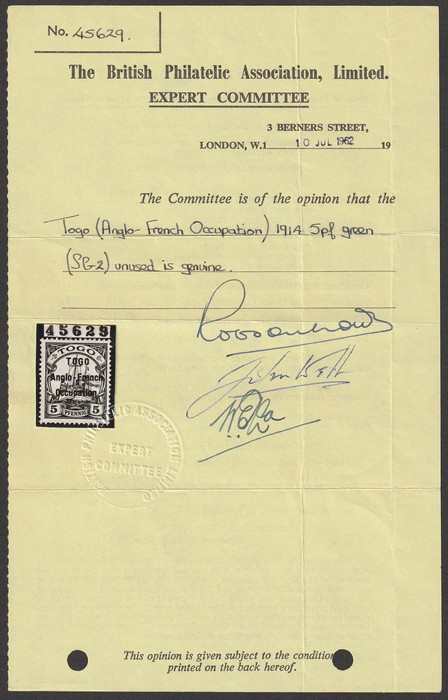 No. 45629.
The British Philatelic Association, Limited.
EXPERT COMMITTEE
3 BERNERS STREET,
LONDON, W.1 10 JUL 1962 19
The Committee is of the opinion that the
Togo (Anglo-French Occupation) 1914 5pf green
(SG2) unused is genuine.
45629
TOGO
TOGO
Anglo-French
Occupation
5 PFENNIG 5
BRITISH PHILATELIC ASSOCIATION LIMITED
EXPERT
COMMITTEE
This opinion is given subject to the condition
printed on the back hereof.